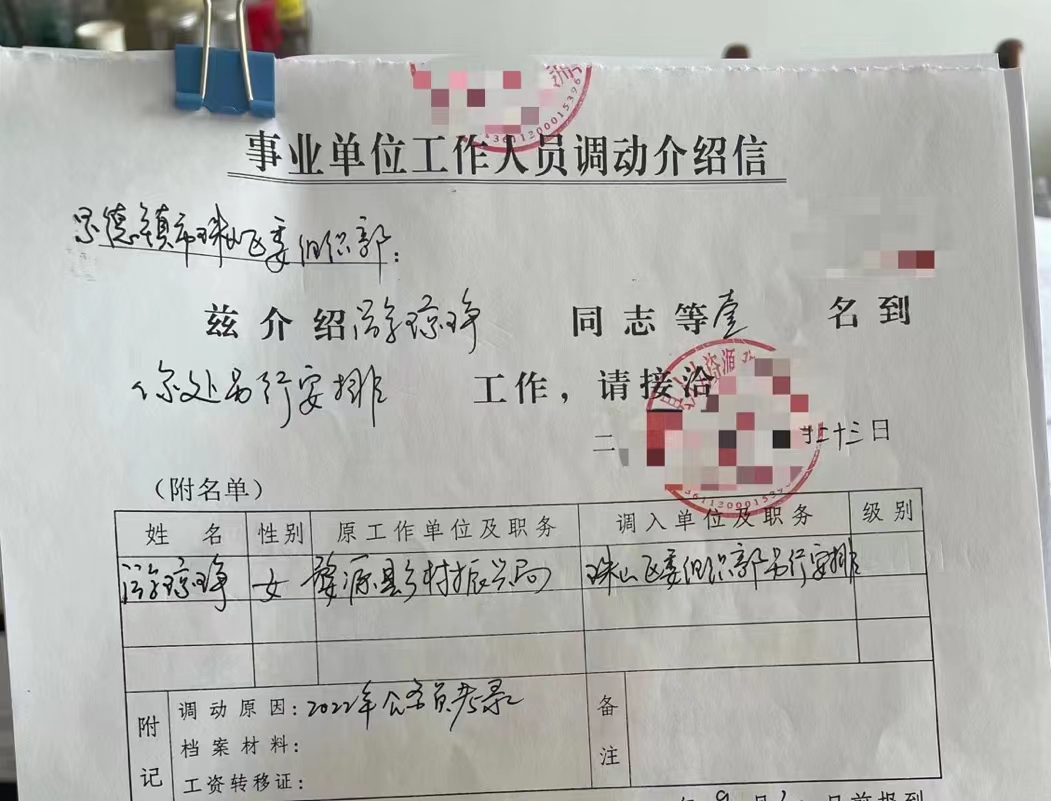 事业单位工作人员调动介绍信
景德镇市珠山区委组织部:
兹介绍 同志等壹 名到
你处另行安排 工作，请接洽
二 二十三日
（附名单）
姓 名 性别 原工作单位及职务 调入单位及职务 级别
女 婺源县乡村振兴局 珠山区委组织部另行安排
附记 调动原因：2022年公务员考录 备注
档案材料：
工资转移证：
年 9 月 日前报到